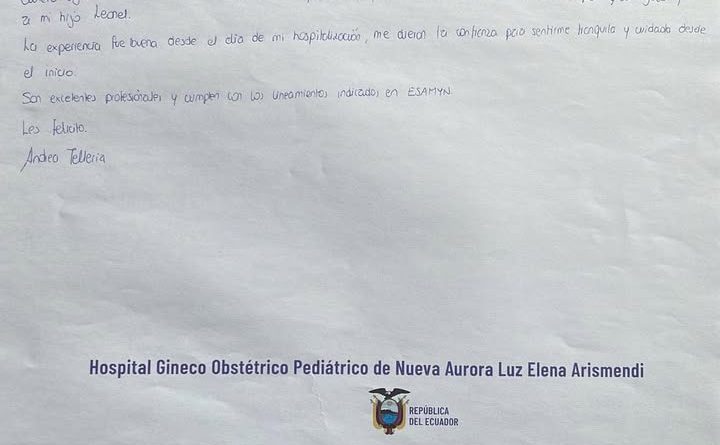 a mi hijo Leonel.
La experiencia fue buena desde el día de mi hospitalización, me dieron la confianza para sentirme tranquila y cuidada desde
el inicio.
Son excelentes profesionales y cumplen con los lineamientos indicados en ESAMYN.
Les felicito.
Andrea Tellería
Hospital Gineco Obstétrico Pediátrico de Nueva Aurora Luz Elena Arismendi
REPÚBLICA
DEL ECUADOR